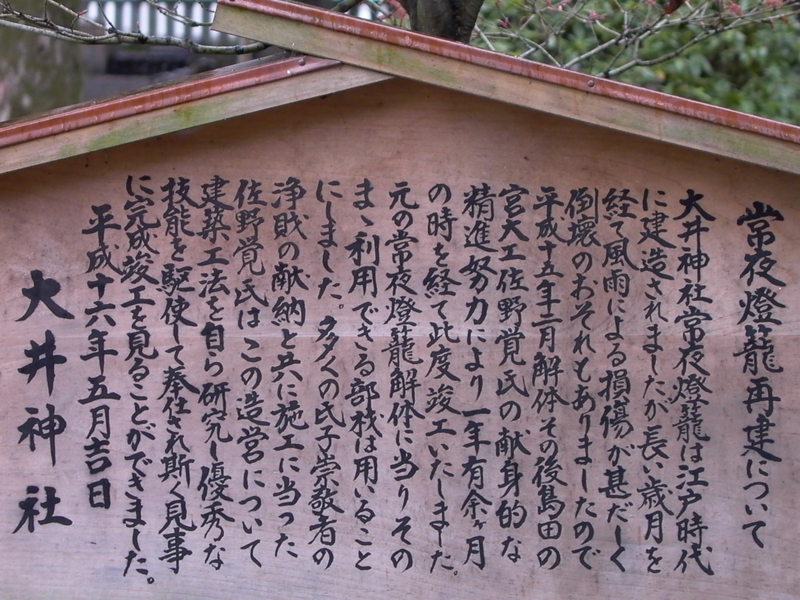 常夜燈籠再建について
大井神社常夜燈籠は江戸時代
に建造されましたが長い歳月を
経て風雨による損傷が甚だしく
倒壊のおそれもありましたので
平成十五年二月解体その後島田の
宮大工佐野覚氏の献身的な
精進努力により一年有余ヶ月
の時を経て此度竣工いたしました。
元の常夜燈籠解体に当りその
まゝ利用できる部材は用いること
にしました。多くの氏子崇敬者の
浄財の献納と共に施工に当った
佐野覚氏はこの造営について
建築工法を自ら研究し優秀な
技能を駆使して奉仕され斯く見事
に完成竣工を見ることができました。
平成十六年五月吉日
大井神社